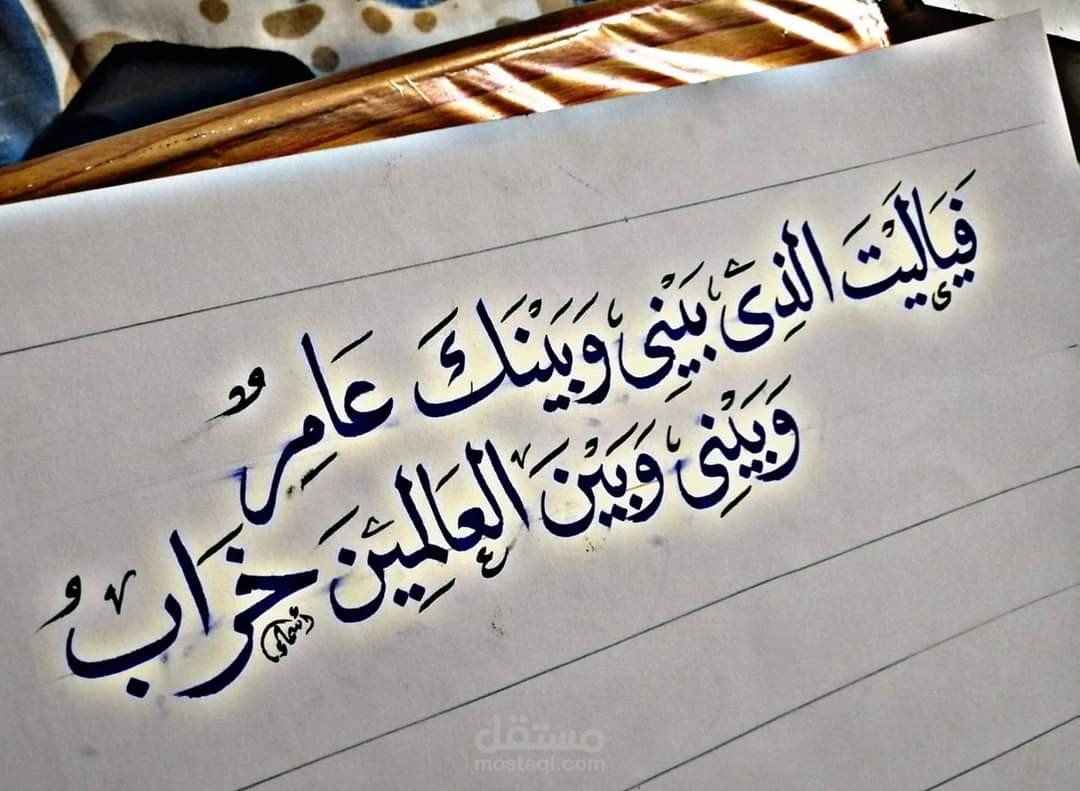 فَيَالَيْتَ الَّذِي بَيْنِي وَبَيْنَكَ عَامِرٌ
وَبَيْنِي وَبَيْنَ الْعَالَمِيْنَ خَرَابُ
مستقل
mostaql.com